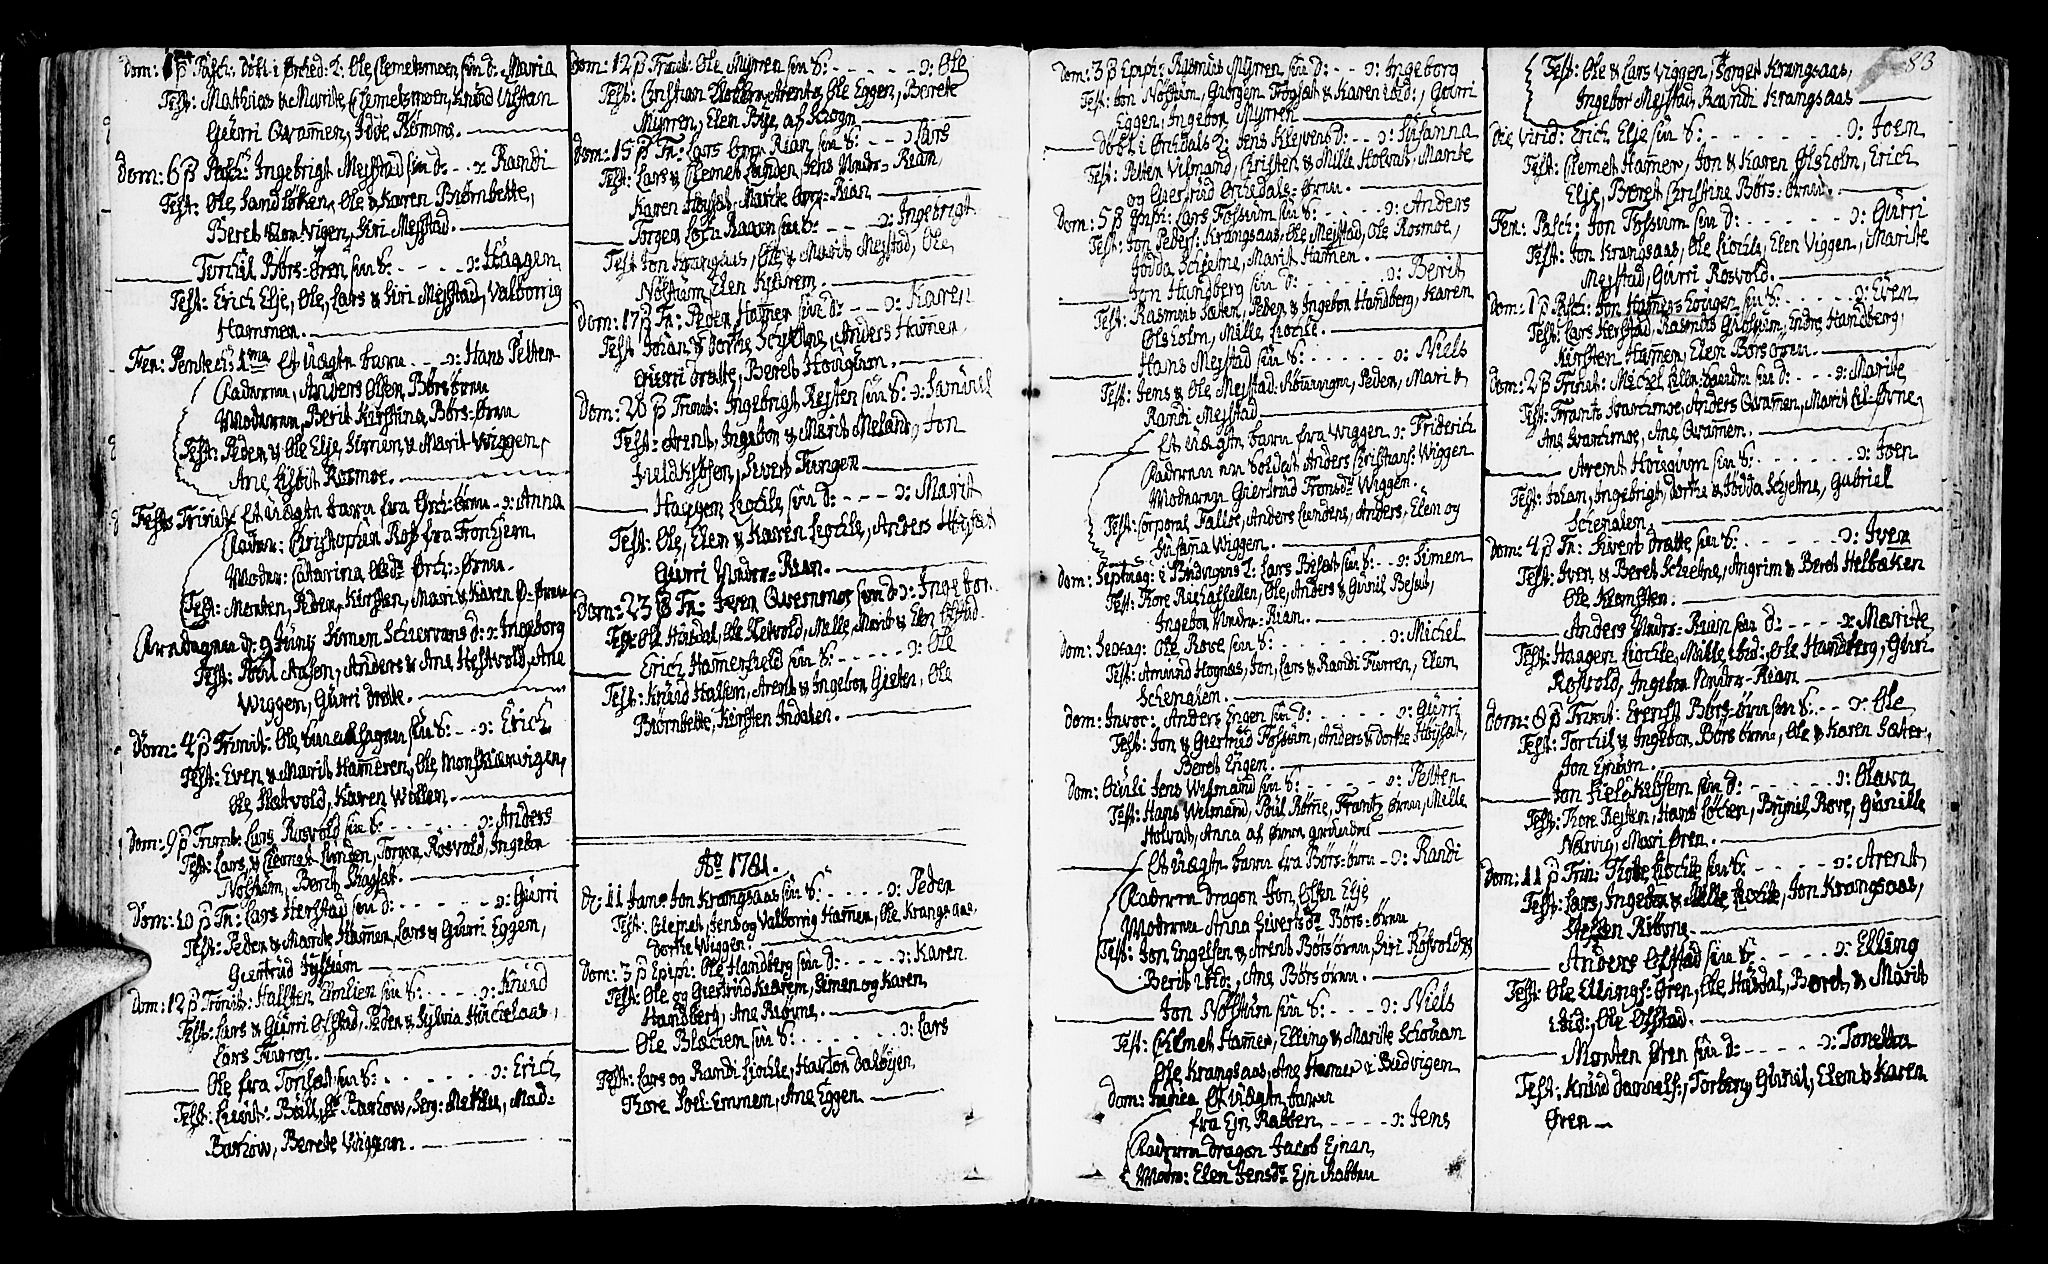 dom: 1 p Pasch: døbt i Orked: 2: Ole Clemetsmoen sin d: Maria
Test: Mathias & Marite Clemetsmoen, Knud Ustan
Gurri Qvamen, Idde Komms.
dom: 6 p Pasch: Ingebrigt Mejstad sin d: - ɔ: Randi
Test: Ole Sandløken, Ole & Karen Biørnbette,
Beret Viggen, Siri Mejstad.
Torchil Børs-Øren sin S: - - - - ɔ: Haagen
Test: Erich Elje, Ole, Lars & Siri Mejstad, Valborrig
Hammer.
Fer: Pentec: 1ma Et uægte barn - - ɔ: Hans Petter
Anders Olsen Børsørnn
Berit Kirstina Børs-Ørnn
Test: Peder & Ole Elje, Simen & Marit Wiggen,
Ane Lisbit Rosmoe.
Fest: Trinit: Et uægte barn fra Orch-Ørnn - ɔ: Anna
Christopher Ross fra Tronhiem
Moder: Catarina Olsdr Orch:-Ørnn.
Test: Morten, Peder, Kirsten, Mari & Karen O-Ørnn
d: 9 Junij Simen d: ɔ: Ingeborg
Test: Poul Aasen, Anders & Ane Hestvold, Ane
Wiggen, Gurri Dratte.
Dom: 4 p Trinit: Ole sin S: - - ɔ: Erich
Test: Even & Marit Hammeren, Ole
Ole Hatvold, Karen Wollen.
dom: 9 p Trinit: Lars Rosvold sin S: - - - - ɔ: Anders
Test: Lars & Clemet Linden, Torger Rosvold, Ingebor
Nostum, Berit
dom: 10 p Tr: Lars Herstad sin d: - - - - - ɔ: Gurri
Test: Peder & Marite Hammer, Lars & Gurri Eggen,
Giertrud
dom: 12 p Trinit: Halsten Emlien sin S: - - - - ɔ: Knud
Test: Lars & Gurri Ofstad, Peder & Sylvia
Lars Furren.
Ole fra sin S: - - - - - - - ɔ: Erich
Test: Lieut: Barhow, Serg: Mad:
Barhow, Berete Viggen.
dom: 12 p Trinit: Ole Myrren sin S: - - - - - - ɔ: Ole
Test: Christian Arent & Ole Eggen, Berete
Myrren, Elen Bye af Skogn
dom: 15 p Tr: Lars Øvre Rian sin S: - - ɔ: Lars
Test: Lars & Clemet Linden, Jens Nedre-Rian,
Karen Høysat, Marite Øvre-Rian
Torger sin S: - - - - ɔ: Ingebrigt
Test Jon Krangsaas, Ole & Marit Mejstad, Ole
Nostum, Elen Kiærem.
Dom: 17 p Tr: Peder Hammer sin d: - - ɔ: Karen
Test: Johan & Dorthe Schjetne, Anders Hammer,
Gurri dratte, Beret Hougum.
Dom: 20 p Trinit: Ingebrigt Reisten sin S: ɔ: Samuel
Test: Arent, Ingebor & Marit Meland, Jon
Kieldkibsen, Sivert Tungen
Haagen Liøchle sin d: - - - ɔ: Marit
Test: Ole, Elen & Karen Liochle, Anders Høysat
Gurri Nedre-Rian.
Dom: 23 p Tr: Iver Qvernmoe sin d ɔ: Ingebor
Test: Ole Husdal, Ole Hatvold, Mille, Marit & Elen Ofstad
Erich Hammerfield sin S: - - - - - ɔ: Ole
Test: Knud Hallem, Arent & Ingebor Gieten, Ole
Biørnbette, Kirsten Indalen.
Ao 1781.
d: 11 Jan: Jon Krangsaas sin S: - - - - ɔ: Peder
Test: Clemet, Jens og Valborrig Hammer, Ole Krangsaas
Dorthe Wiggen
Dom: 3 p Epiph: Ole Handberg sin d: - - - - ɔ: Karen
Test: Ole og Giertrud Kiærem, Simen og Karen
Handberg, Ane Riøvne.
Ole Blæchem sin S: - - - - - - - ɔ: Lars
Test: Lars og Randi Liochle, Haxton Daløyen,
Thore Soel-Emmem, Ane Eggen
Dom: 3 p Epiph: Rasmus Myrren sin d: - - ɔ: Ingeborg
Test: Jon Nøstum, Giørgen Frøgsat & Karen ibid:, Gurri
Eggen, Ingebor Myrren
Døbt i Orchdals 2: Jens Klevens d: - - ɔ: Susanna
Test: Petter Vismand, Christen & Mille Holvat, Marite
og Giertrud Orchdals-Ørnn.
Dom: 5 p Epiph: Lars Fossum sin S: - - - - - ɔ: Anders
Test: Jon Peders: Krangsaas, Ole Mejstad, Ole Rosmoe,
Jødda Schjetne, Marit Hammer.
Jon Handberg sin d: - - - - - ɔ: Berit
Test: Rasmus Sæter, Peder & Ingebor Handberg, Karen
Olsholm, Mille Liochle.
Hans Mejstad sin S: - - - - - - ɔ: Niels
Test: Jens & Ole Mejstad, Peder, Mari &
Randi Mejstad
Et uægte barn fra Wiggen ɔ: Friderich
Soldat Anders Christians: Wiggen
Moderen Giertrud Tronsdr Wiggen.
Test: Corporal Falle, Anders Lundens, Anders, Elen og
Susanna Wiggen.
dom: Septuag: i Budvigens 2: Lars Besæt sin S: - - ɔ: Simen
Test: Thore Ole, Anders & Guril Besæt,
Ingebor Nedre-Rian.
dom: Sexag: Ole Rove sin S: - - - - - ɔ: Michel
Test: Amund Hognæs, Jon, Lars & Randi Furren, Elen
Schenalen.
dom: Invoc: Anders Engen sin d: - - - - - ɔ: Gurri
Test: Jon & Giertrud Fossum, Anders & Dorthe Høysæt,
Beret Engen.
dom: Oculi Jens Wismand sin S: - - - - - ɔ: Petter
Test: Hans Wismand, Poul Rømme, Frantz Ørnn, Mille
Holvat, Anna af Ørnn
Et uægte barn fra Børs-Ørnn - ɔ: Randi
dragon Jon Olsen Elje
Anna Sivertsdr Børs-Ørnn
Test: Jon Engelsen & Arent Børsørnn, Siri Rosvold &
Berit ibid:, Ane Børsørnn.
Jon Nostum sin S: - - - ɔ: Niels
Test: Clemet Hammer, Elling & Marite Schothan
Ole Krangsaas, Ane Hammer i Budvigen
Dom: Judica Et uægte barn
fra Ejn Rabben - - - - - ɔ: Jens
dragon Jacob Ejnan
Moder: Elen Jensdr Ejn Rabben
83
Test: Ole & Lars Viggen, Torger Krangsaas,
Ingebor Mejstad, Randi Krangsaas
Die Virid: Erich Elje sin S: - - - - - - - ɔ: Joen
Test: Clemet Hammer, Jon & Karen Olsholm, Erich
Elje, Beret Christine Børs-Ørnn.
Fer: Pasch: Jon Fossum sin d: - - - - - ɔ: Gurri
Test: Jon Krangsaas, Ole Liochle, Elen Viggen, Marite
Mejstad, Gurri Rosvold.
Dom: 1 p Pasch: Jon Hammers Eougen sin S: - - - - - ɔ: Even
Test: Lars Herstad, Rasmus Endre Handberg,
Kirsten Hammer, Elen Børsørnn.
dom: 2 p Trinit: Michel sin d: - - - ɔ: Marite
Test: Frantz Svartmoe, Anders Qvamen, Marit Lil-Ørne,
Ane Svartmoe, Ane Qvamen.
Arent Hougum sin S: - - - - - - ɔ: Joen
Test: Johan, Ingebrigt, Dorthe & Jødda Schjetne, Gabriel
Schenalen.
dom: 4 p Tr: Sivert dratte sin S: - - - - - - ɔ: Iver
Test: Iver & Beret Schjetne, Angrim & Beret Helbæken
Ole Klemsten.
Anders Nedre-Rian sin d: - - - - ɔ: Marite
Test: Haagen Liochle, Mille ibid:, Ole Handberg, Gurri
Rosvold, Ingebor Nedre-Rian
Dom: 8 p Trinit: Erenst Børs-Ørnn sin S: - - ɔ: Ole
Test: Torchil & Ingebor Børsørnn, Ole & Karen Sæter,
Jon Einum.
Jon Kieldkibsen sin d: - - - - - ɔ: Olava
Test: Thore Reisten, Hans Løchen, Brynil Rove, Gunille
Narvig, Mari Øren.
dom: 11 p Trin: Tøtte Liochle sin S: - - - - - ɔ: Arent
Test: Lars, Ingebor & Mille Liochle, Jon Krangsaas,
Steffen Riøvne.
Anders Ofstad sin S: - - - - ɔ: Elling
Test: Ole Ellings: Øren, Ole Husdal, Beret & Marit
ibid:, Ole Ofstad.
Morten Øren sin d: - - - - - ɔ: Tonetta
Test: Knud Daniels:, Torber, Guruil, Elen & Karen
Øren